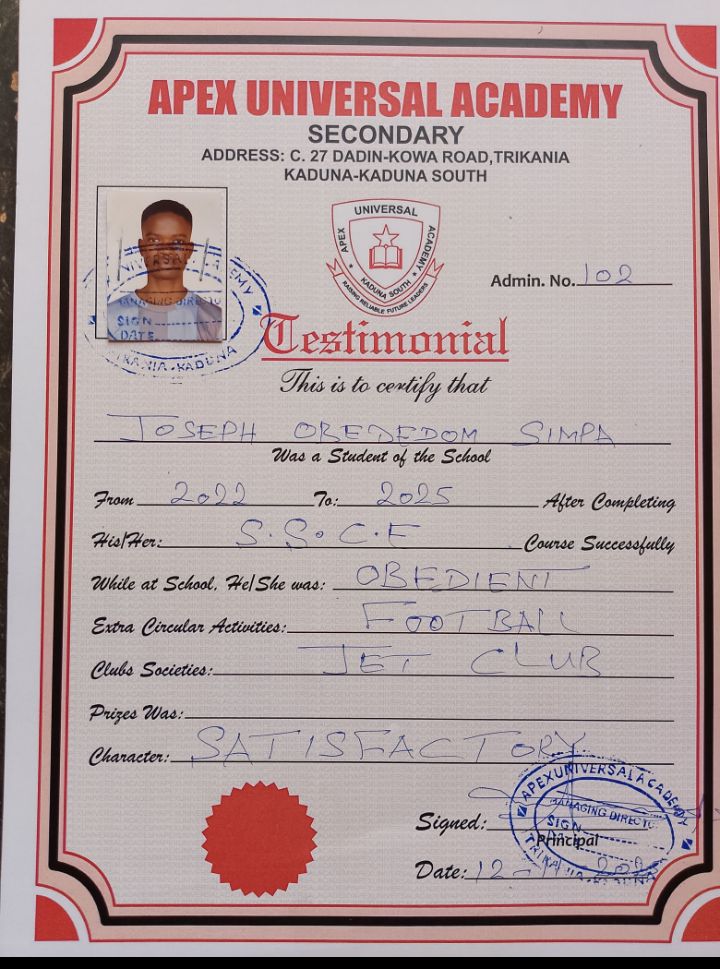 APEX UNIVERSAL ACADEMY
SECONDARY
ADDRESS: C. 27 DADIN-KOWA ROAD,TRIKANIA
KADUNA-KADUNA SOUTH
APEX UNIVERSAL ACADEMY
★ KADUNA SOUTH ★
RAISING RELIABLE FUTURE LEADERS
Admin. No. 102
UNIVERSAL ACADEMY
MANAGING DIRECTO
SIGN
DATE
TRIKANIA-KADUNA
Testimonial
This is to certify that
JOSEPH OBEDEDOM SIMPA
Was a Student of the School
From 2022 To: 2025 After Completing
His/Her: S.S.C.E Course Successfully
While at School, He/She was: OBEDIENT
Extra Circular Activities: FOOTBALL
Clubs Societies: JET CLUB
Prizes Was:
Character: SATISFACTORY
APEX UNIVERSAL ACADEMY
MANAGING DIRECTO
SIGN
TRIKANIA-KADUNA
Signed:
Principal
Date: 12